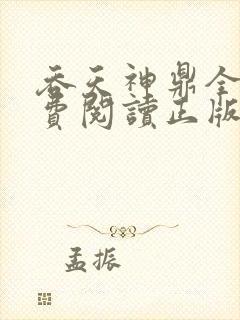 吞天神鼎全
費閱讀正版
孟振